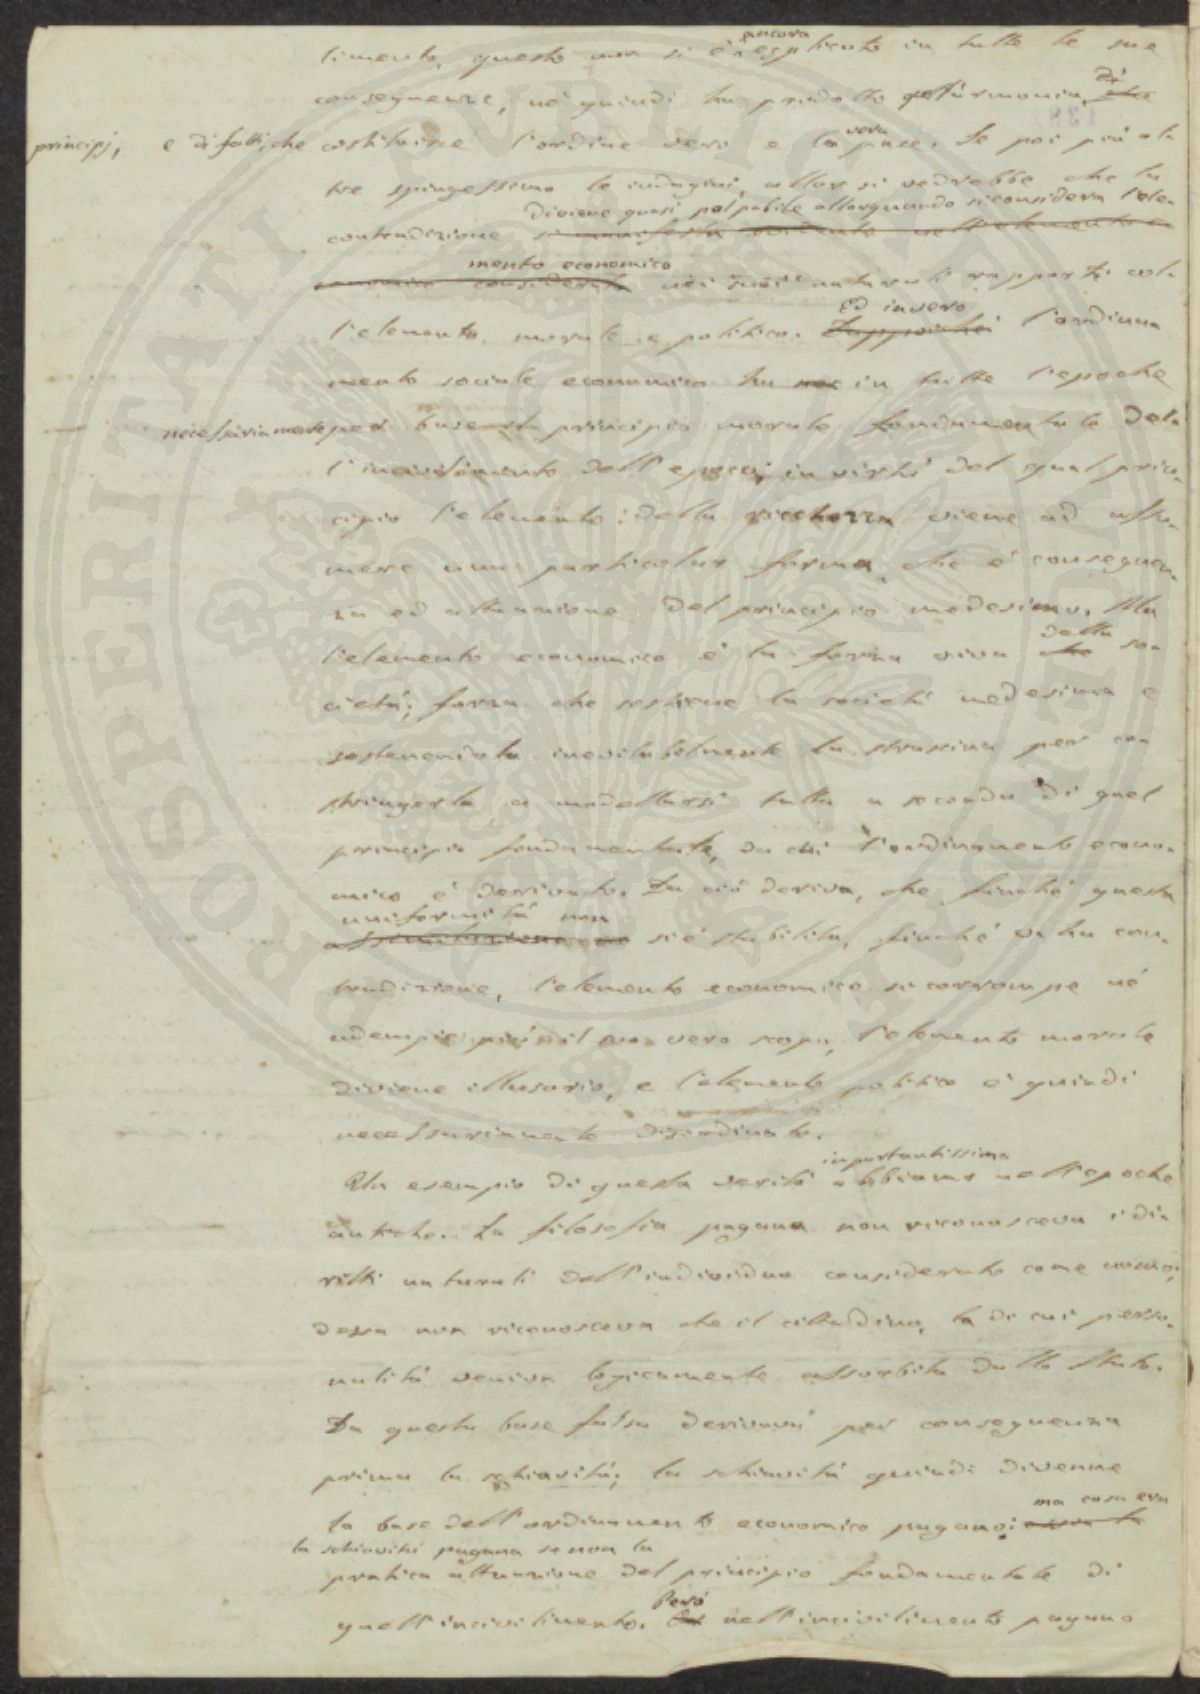 limento, questo non si è ancora esplicato in tutte le sue
conseguenze, né quindi ha prodotto quell'armonia di
principj, e di fatti, che costituisce l'ordine vero e la vera pace. Se poi più ol-
tre spingessimo le indagini, allor si vedrebbe che la
contradizione diviene quasi palpabile allorquando si considera l'ele-
mento economico nei suoi naturali rapporti col-
l'elemento morale e politico. Ed invero l'ordina-
mento sociale economico ha in tutte l'epoche
necessariamente per base il principio morale fondamentale del-
l'incivilimento dell'epoca, in virtù del qual prin-
cipio l'elemento della ricchezza viene ad assu-
mere una particolar forma, che è conseguen-
za ed attuazione del principio medesimo. Ma
l'elemento economico è la forza viva della so-
cietà; forza che sostiene la società medesima e
sostenendola inevitabilmente la strascina per co-
stringerla a modellarsi tutta a seconda di quel
principio fondamentale, da cui l'ordinamento econo-
mico è derivato. Da ciò deriva, che finché questa
uniformità non si è stabilita, finché vi ha con-
tradizione, l'elemento economico si corrompe né
adempie più il suo vero scopo, l'elemento morale
diviene illusorio, e l'elemento politico è quindi
necessariamente disordinato.
Un esempio di questa verità importantissima abbiamo nell'epoche
antiche. La filosofia pagana non riconosceva i di-
ritti naturali dell'individuo considerato come uomo;
dessa non riconosceva che il cittadino, la di cui perso-
nalità veniva logicamente assorbita dallo Stato.
Da questa base falsa derivava per conseguenza
prima la schiavitù; la schiavitù quindi divenne
la base dell'ordinamento economico pagano; ma cosa era
la schiavitù pagana se non la
pratica attuazione del principio fondamentale di
quell'incivilimento. Però nell'incivilimento pagano